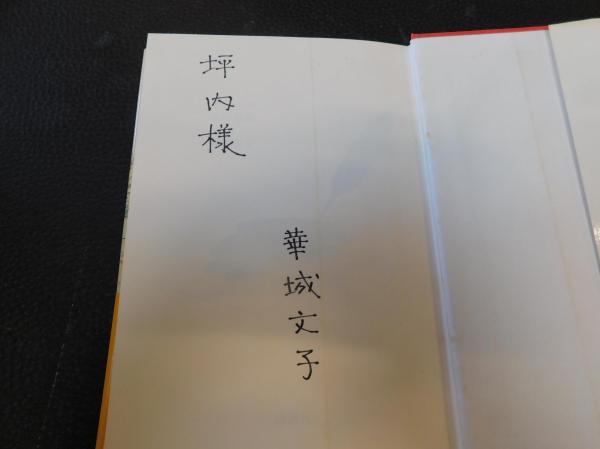 坪内様
華城文子